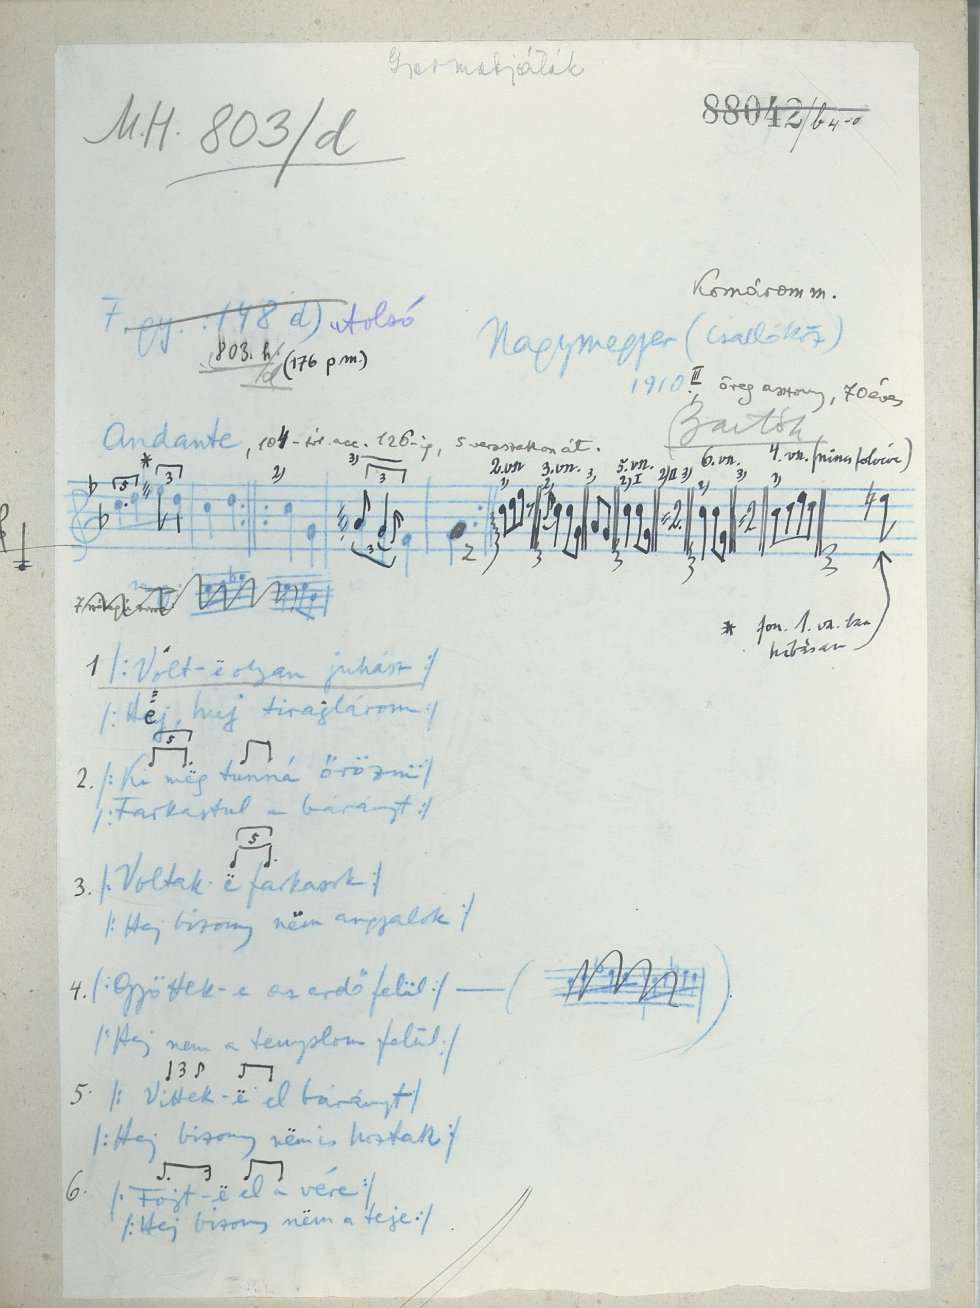 Gyermekjáték
M.H. 803/d
88042/b
Komárom m.
7. gy. (48 d) utolsó
803. h.
/d (176 p m.)
Nagymegyer (Csallóköz)
1910 II öreg asszony, 70 éves
Bartók
Andante, 104- 126-ig, 5 versszakon át.
* 5 3 2) 3) 3 2. vsz 3. vsz. 5. vsz. 6. vsz. 4. vsz. (nincs fölvéve)
* fon. 1. vsz.-ban
hibásan
1 /: Vólt-ë olyan juhász :/
/: Hej, huj tiraglárom :/
2. /: Ki mëg tunná őrözni :/
/: Farkastul a bárányt :/
3. /: Voltak-ë farkasok :/
/: Hej bizony nëm angyalok :/
4. /: Gyöttek-e az erdő felül :/
/: Hej nem a templom felül :/
5. /: Vittek-ë el bárányt /
/: Hej bizony nëm is hoztak :/
6. /: Fojt-ë el a vére :/
/: Hej bizony nëm a teje :/